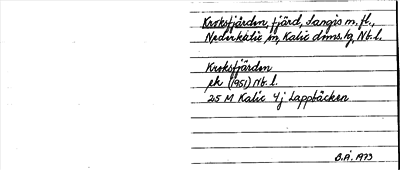 Kroksfjärden, fjärd, Sangis m. fl.,
Nederkalix sn, Kalix doms. tg, Nb. l.
Kroksfjärden
ek (1951) Nb. l.
25 M Kalix 4j Lappbäcken
B.Å. 1973